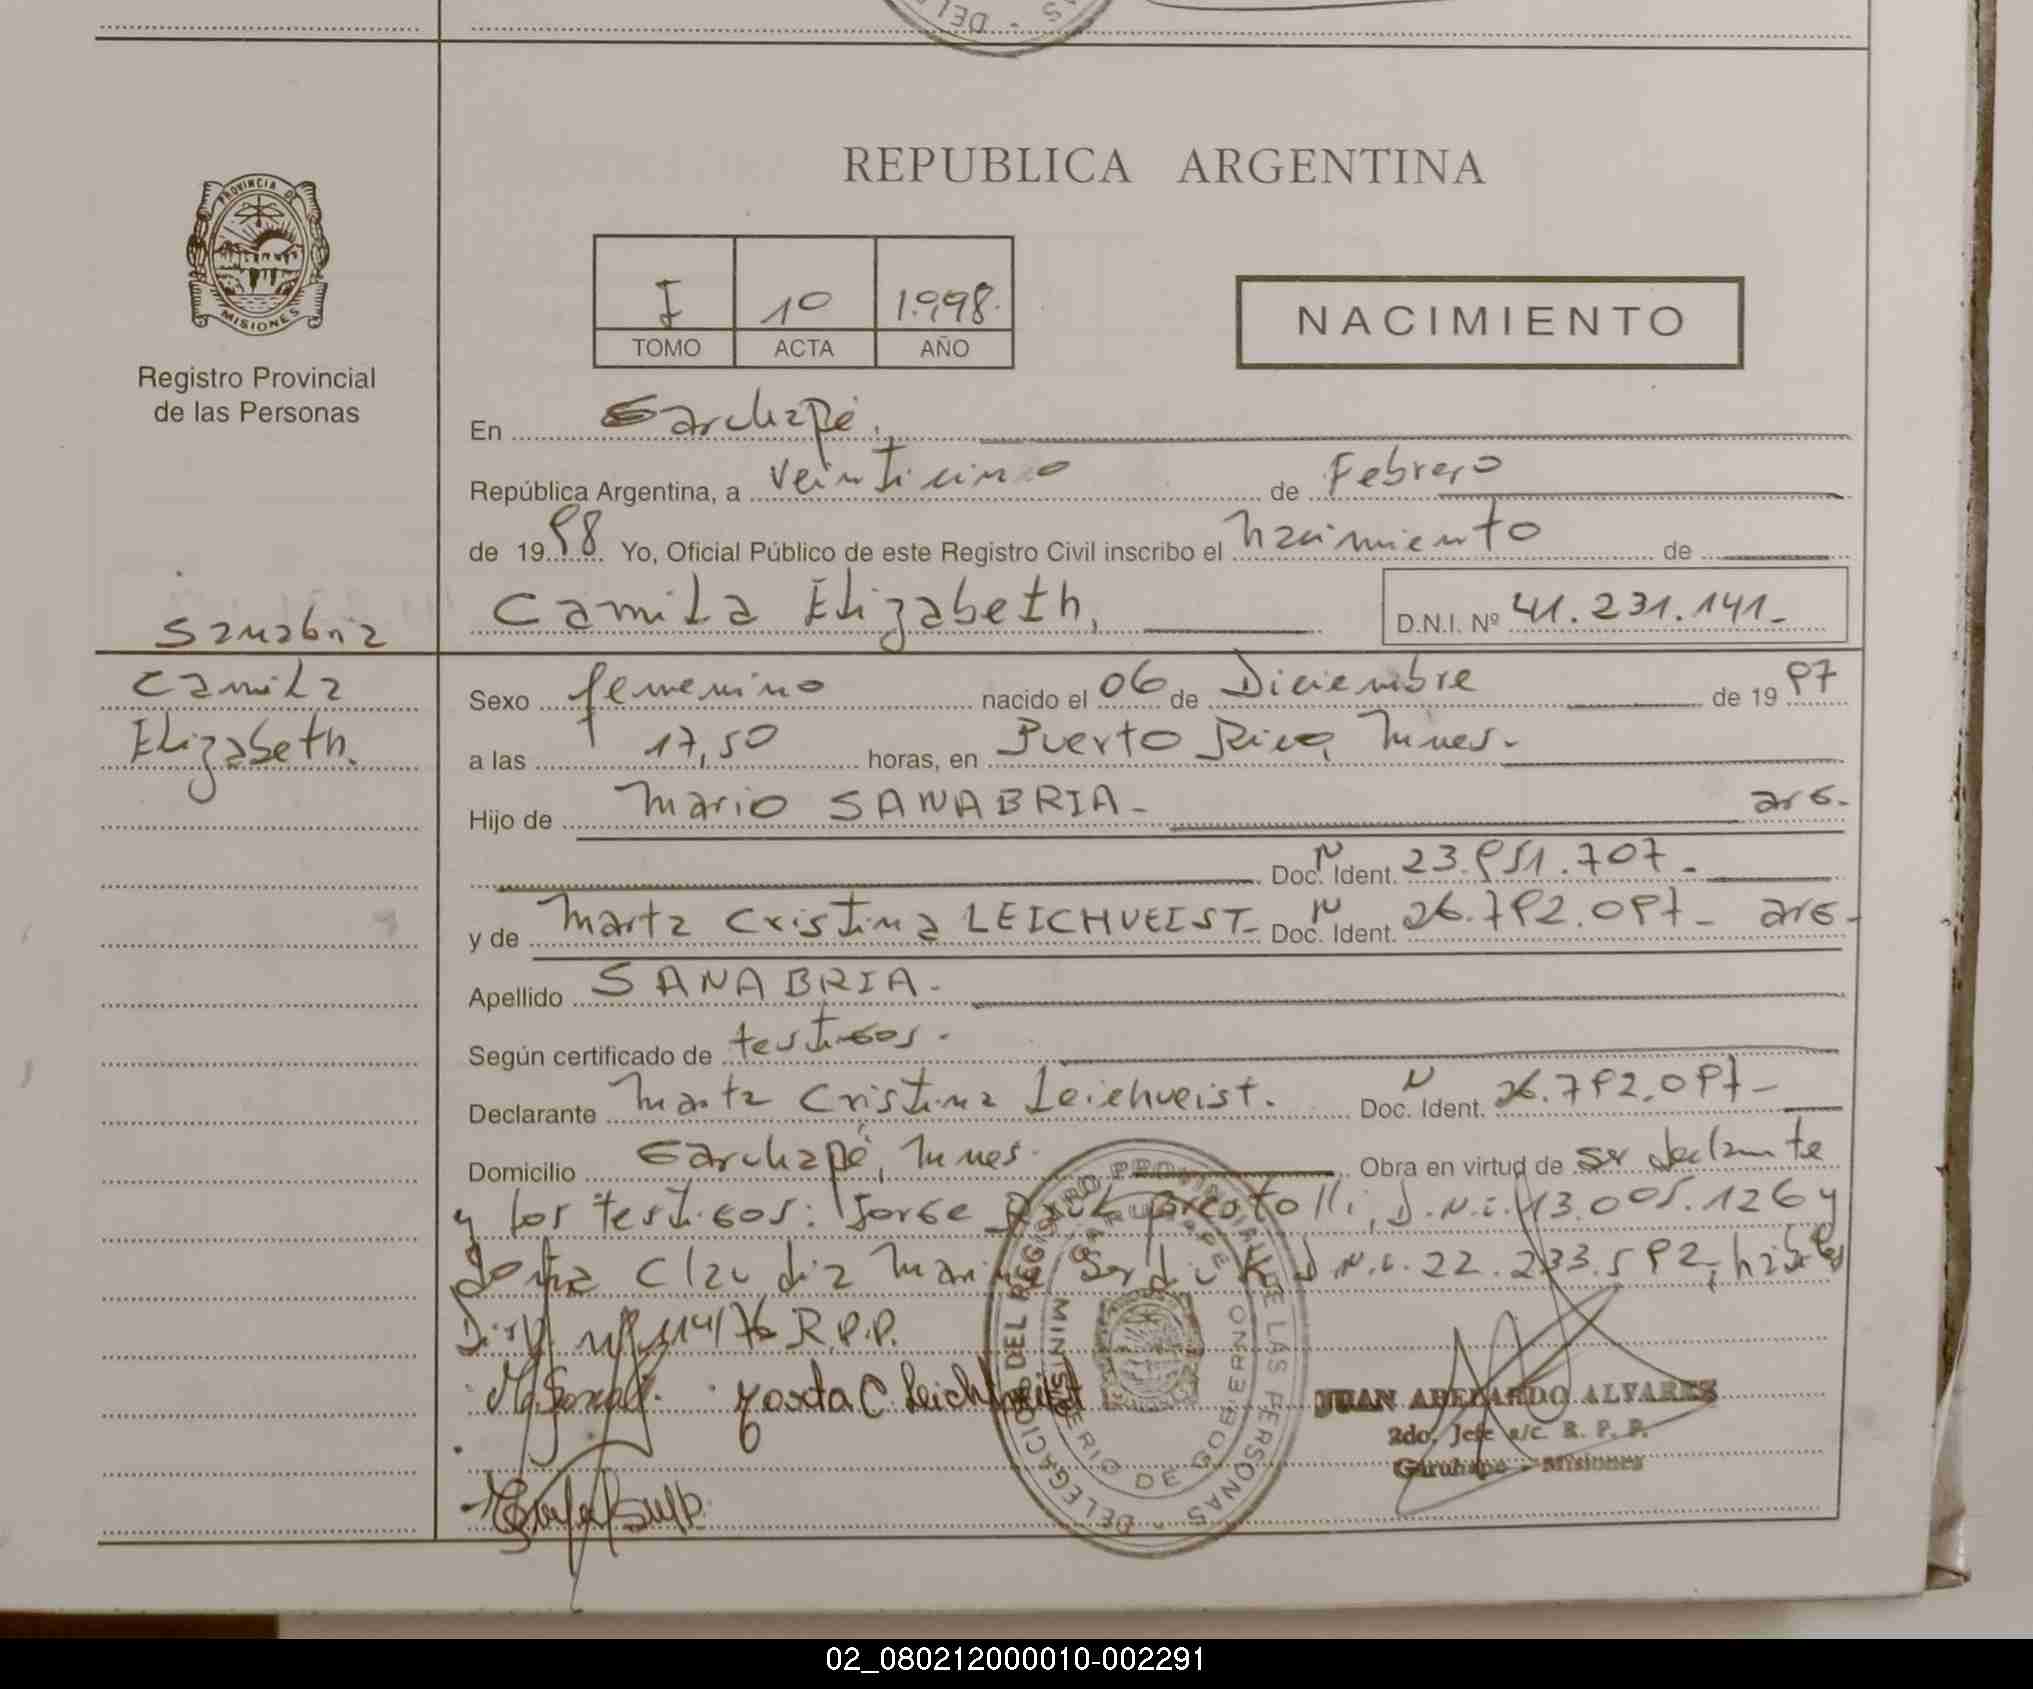 REPUBLICA ARGENTINA
PROVINCIA DE
MISIONES
Registro Provincial
de las Personas
I 10 1.998.
TOMO ACTA AÑO
NACIMIENTO
En Garuhapé.
República Argentina, a veinticinco de Febrero
de 1998 Yo, Oficial Público de este Registro Civil inscribo el nacimiento de
Sanabria
Camila
Elizabeth.
Camila Elizabeth, D.N.I. Nº 41.231.141-
Sexo femenino nacido el 06 de Diciembre de 1997
a las 17,50 horas, en Puerto Rico, Mnes.-
Hijo de Mario SANABRIA- arg.
Doc. Ident. N 23.951.707-
y de Marta Cristina LEICHVEIST- Doc. Ident. N 26.792.097- arg-
Apellido SANABRIA.
Según certificado de testigos.
Declarante Marta Cristina Leichveist. Doc. Ident. N 26.792.097-
Domicilio Garuhapé, Mnes. Obra en virtud de ser declarante
y los testigos: Jorge D.N.I. 13.005.126 y
doña Claudia D.N.I. 22.233.592, hábiles
Disp. nº 114/76 R.P.P.
Marta C. Leichveist
DELEGACION DEL REGISTRO PROVINCIAL DE LAS PERSONAS
GARUHAPE
MINISTERIO DE GOBIERNO
JUAN ABELARDO ALVAREZ
2do. Jefe a/c. R. P. P.
Garuhape - Misiones
02_080212000010-002291